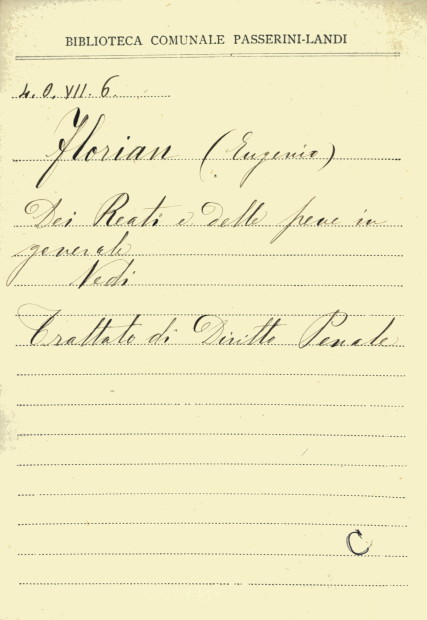 BIBLIOTECA COMUNALE PASSERINI-LANDI
4. O. VII. 6.
Florian (Eugenio)
Dei Reati e delle pene in
generale
Vedi
Trattato di Diritto Penale
C